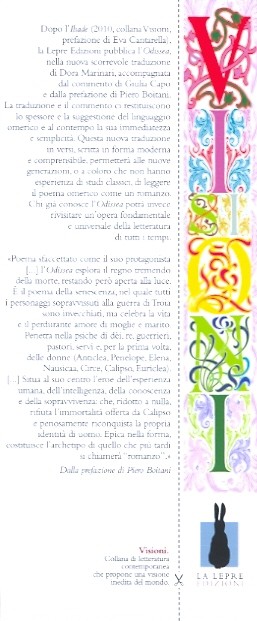 Dopo l'Iliade (2010, collana Visioni,
prefazione di Eva Cantarella),
la Lepre Edizioni pubblica l'Odissea,
nella nuova scorrevole traduzione
di Dora Marinari, accompagnata
dal commento di Giulia Capo
e dalla prefazione di Piero Boitani.
La traduzione e il commento ci restituiscono
lo spessore e la suggestione del linguaggio
omerico e al contempo la sua immediatezza
e semplicità. Questa nuova traduzione
in versi, scritta in forma moderna
e comprensibile, permetterà alle nuove
generazioni, o a coloro che non hanno
esperienza di studi classici, di leggere
il poema omerico come un romanzo.
Chi già conosce l'Odissea potrà invece
rivisitare un'opera fondamentale
e universale della letteratura
di tutti i tempi.
«Poema sfaccettato come il suo protagonista
[...] l'Odissea esplora il regno tremendo
della morte, restando però aperta alla luce.
È il poema della senescenza, nel quale tutti
i personaggi sopravvissuti alla guerra di Troia
sono invecchiati, ma celebra la vita
e il perdurante amore di moglie e marito.
Penetra nella psiche di dèi, re, guerrieri,
pastori, servi e, per la prima volta,
delle donne (Anticlea, Penelope, Elena,
Nausicaa, Circe, Calipso, Euriclea).
[...] Situa al suo centro l'eroe dell'esperienza
umana, dell'intelligenza, della conoscenza
e della sopravvivenza: che, ridotto a nulla,
rifiuta l'immortalità offerta da Calipso
e penosamente riconquista la propria
identità di uomo. Epica nella forma,
costituisce l'archetipo di quello che più tardi
si chiamerà "romanzo".»
Dalla prefazione di Piero Boitani
Visioni.
Collana di letteratura
contemporanea
che propone una visione
inedita del mondo.
VISIONI
LA LEPRE
EDIZIONI